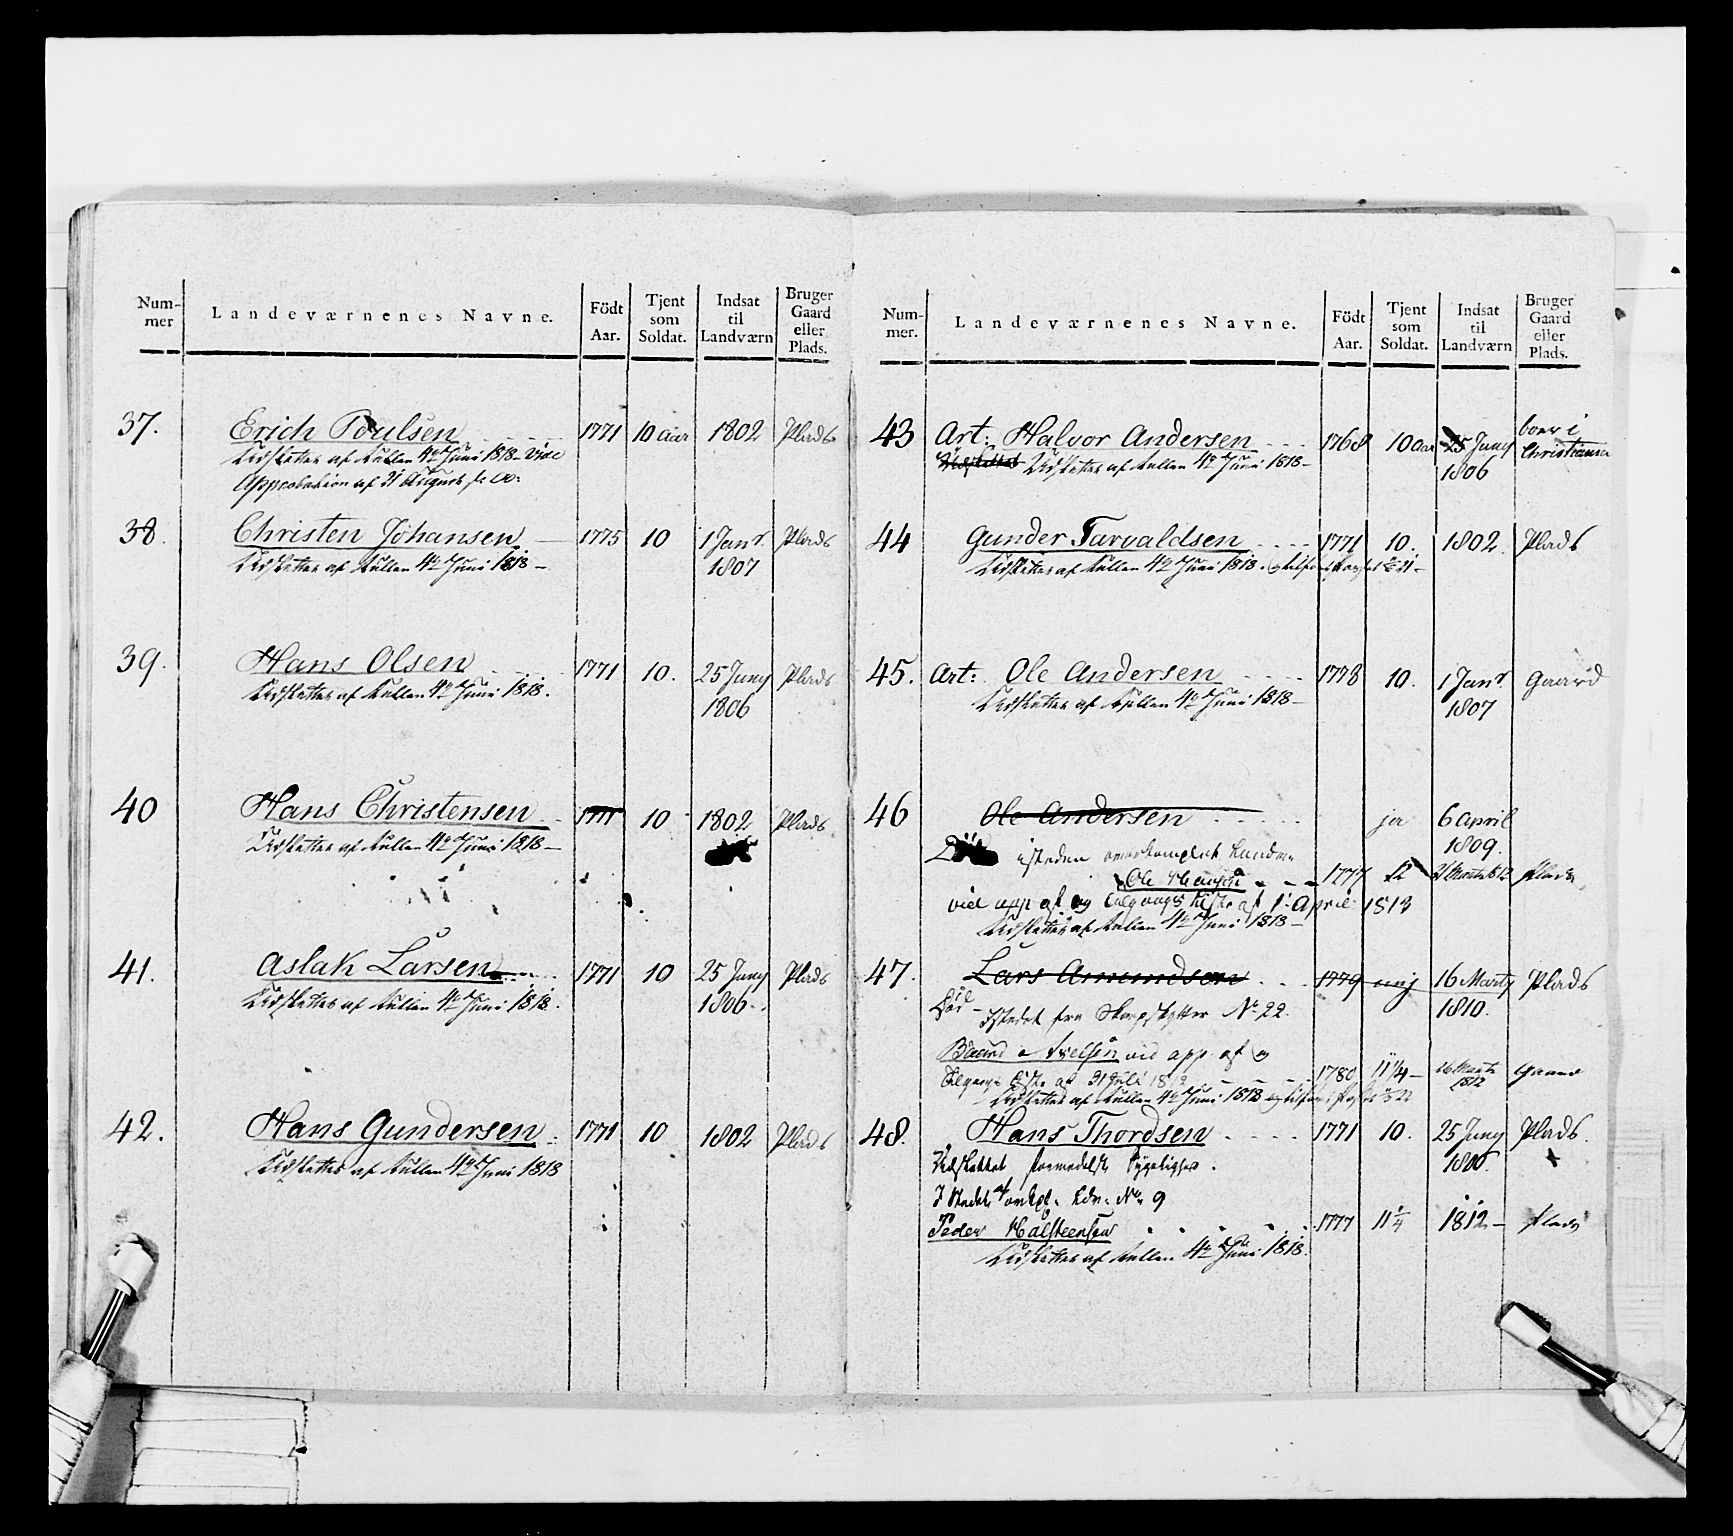 Num-
mer
Landeværnenes Navne.
Födt
Aar.
Tjent
som
Soldat.
Indsat
til
Landværn
Bruger
Gaard
eller
Plads.
37. Erich Poulsen 1771 10 aar 1802 Plads
Udslettet af Rullen 4de Juni 1818 - vide
Approbation af 31 August
38. Christen Johansen 1775 10 1 Janr. Plads
Udslettet af Rullen 4de Juni 1818 - 1807
39. Hans Olsen 1771 10. 25 Juny Plads
Udslettet af Rullen 4de Juni 1818. 1806
40 Hans Christensen 1771 10 1802 Plads
Udslettet af Rullen 4de Juni 1818 -
41. Aslak Larsen 1771 10 25 Juny Plads
Udslettet af Rullen 4de Juni 1818. 1806.
42. Hans Gundersen 1771 10 1802 Plads
Udslettet af Rullen 4de Juni 1818
Num-
mer.
Landeværnenes Navne.
Födt
Aar.
Tjent
som
Soldat.
Indsat
til
Landværn
Bruger
Gaard
eller
Plads.
43 Art: Halvor Andersen 1768 10 aar 25 Juny boer i
Udslettet Udslettet af Rullen 4de Juni 1818 - 1806 Christiania
44 Gunder Tarvaldsen 1771 10. 1802. Plads
Udslettet af Rullen 4de Juni 1818.
45. Art: Ole Andersen 1778 10. 1 Janr. Gaard
Udslettet af Rullen 4de Juni 1818 - 1807
46 Ole Andersen ja 6 april
1809.
Död isteden overkomplet Landv:
Ole Hansen 1777 12 Plads
vid app af og Tilgangs Liste af 1 April 1813
Udslettet af Rullen 4de Juni 1818 -
47. Lars Amundsen 1779 nej 16 Marty Plads
Död - Istedet fra Skarpskytter No 22. 1810.
Baard Ivelsen vid app af og
Tilgangs Liste af 31 Juli 1812 1780 11 1/4 - 16 Marts 1812 Gaard
Udslettet af Rullen 4de Juni 1818
48. Hans Thordsen 1771 10. 25 Juny Plads.
Udslettet formedelst Sygelighed. 1806.
I Stedet overkpl. Ldv: No 9
Peder Halsteensen 1777 11 1/4 1812 - Plads
Udslettet af Rullen 4de Juni 1818.